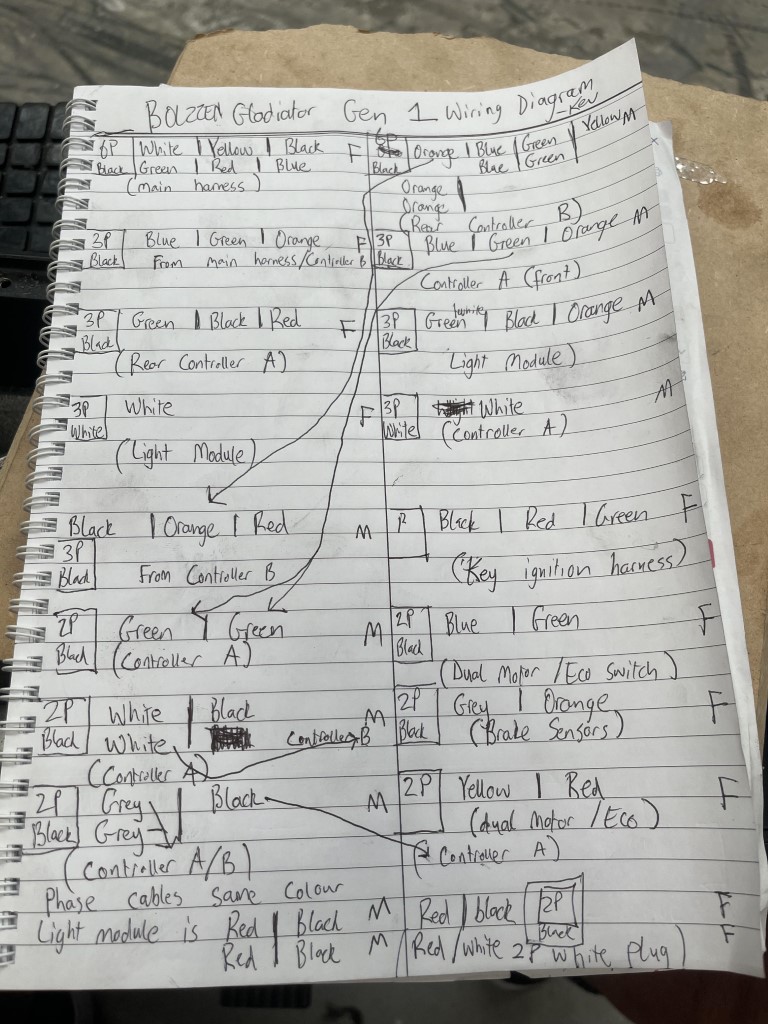 BOLZZEN Gladiator Gen 1 Wiring Diagram
Kev
6P White | Yellow | Black F
Black Green | Red | Blue
(main harness)
6P Orange | Blue | Green | Yellow M
Black Blue | Green
Orange |
Orange
(Rear Controller B)
3P Blue | Green | Orange F
Black From main harness/Controller B
3P Blue | Green | Orange M
Black
Controller A (front)
3P Green | Black | Red F
Black
(Rear Controller A)
3P Green/white | Black | Orange M
Black
Light Module)
3P White F
White
(Light Module)
3P White M
White (Controller A)
Black | Orange | Red M
3P
Black From Controller B
P Black | Red | Green F
(Key ignition harness)
2P Green | Green M
Black (Controller A)
2P Blue | Green F
Black
(Dual Motor/Eco Switch)
2P White | Black M
Black White Controller B
(Controller A)
2P Grey | Orange F
Black (Brake Sensors)
2P Grey | Black M
Black Grey
(Controller A/B)
2P Yellow | Red F
(dual Motor/Eco)
(Controller A)
Phase cables same colour
Light module is Red | Black M
Red | Black M
Red | black 2P F
Black
(Red/white 2P white plug) F